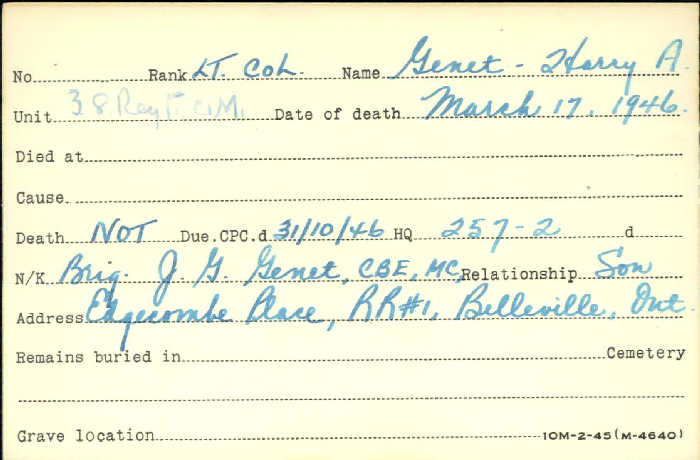 No Rank LT. COL. Name Genet - Harry A.
Unit 38 Reg't. C.M. Date of death March 17, 1946.
Died at
Cause
Death NOT Due.CPC.d 31/10/46 HQ 257-2 d
N/K Brig. J. G. Genet, CBE, MC, Relationship Son
Address Edgecombe Place, RR#1, Belleville, Ont.
Remains buried in Cemetery
Grave location 10M-2-45(M-4640)